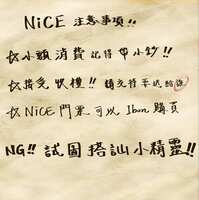 NiCE 注意事項!!
小額消費 記得帶小鈔!!
接受收禮!!
以 NiCE 門票可以 Ibon 購買
NG!! 試圖搭訕小精靈!!